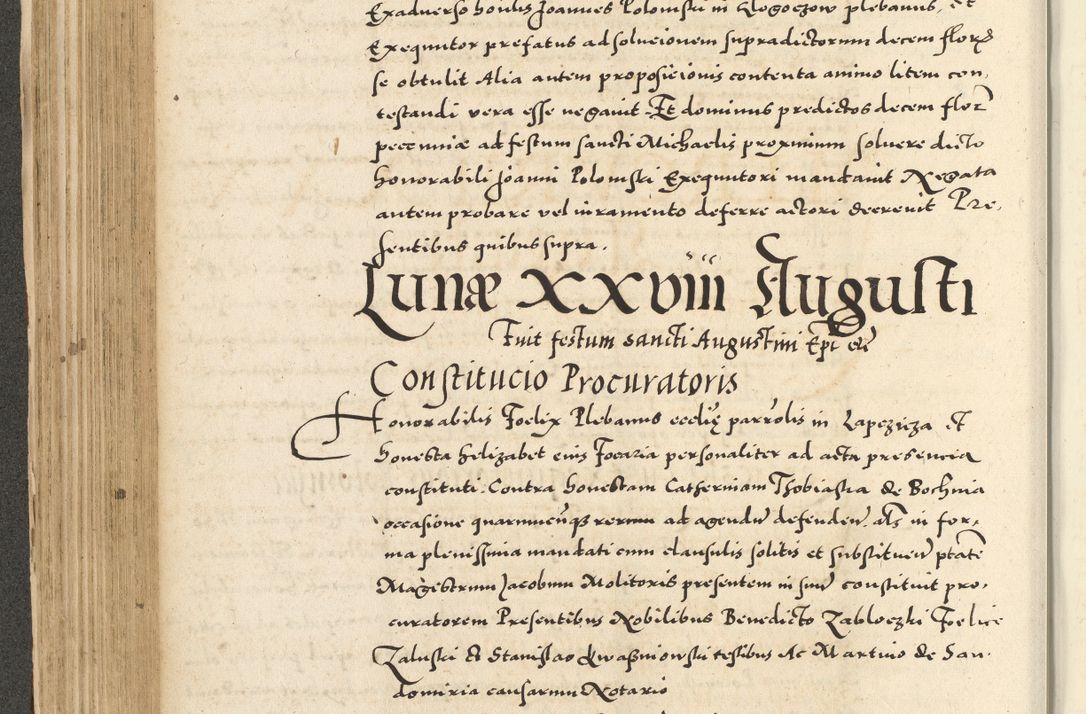 Exadverso honlis Joannes Polomski in Gogoczow plebanus, et
Exequutor prefatus ad solucionem supradictorum decem flor
se obtulit Alia autem proposicionis contenta animo litem con-
testandi vera esse negavit Et dominus predictos decem flor
pecuniæ ad festum sancti Michaelis proximum solvere dicto
honorabili Joanni Polomski Exequutori mandavit Negata
autem probare vel iuramento deferre actori decrevit Pre-
sentibus quibus supra.
Lunæ XXviii Augusti
Fuit festum sancti Augustini Epi etc
Constitucio Procuratoris
Honorabilis Foelix Plebanus ecclie parrolis in Lapczicza et
honesta helizabet eius Focaria personaliter ad acta presencia
constituti. Contra honestam Catherinam Thobiaska de Bochnia
occasione quarumcunque rerum ad agendum defendendum als in for-
ma plenissima mandati cum clausulis solitis et substituendi ptatem
Magistrum Jacobum Molitoris presentem in suum constituit pro-
curatorem Presentibus Nobilibus Benedicto Zabloczki Foelice
Zaluski et Stanislao Kwasniowski testibus Ac Martino de San-
domiria causarum Notario